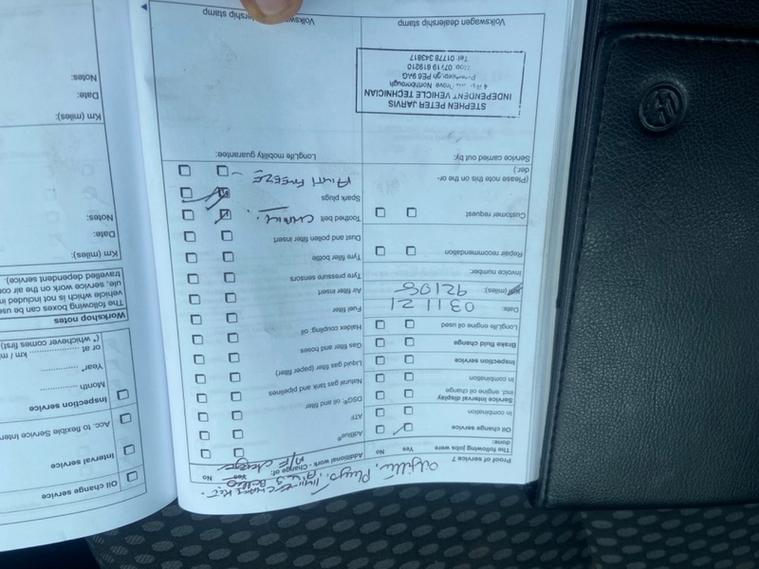 Proof of service 7
The following jobs were done:
Yes
No
Oil change service
In combination
Service Interval display
incl. engine oil change
In combination
Inspection service
Brake fluid change
LongLife engine oil used
Date:
03 11 21
(miles):
92108
Invoice number:
Repair recommendation
Customer request
(Please note this on the or-
der.)
Service carried out by:
STEPHEN PETER JARVIS
INDEPENDENT VEHICLE TECHNICIAN
Northborough
PE6 9AG
07719 619210
Tel: 01778 343817
Volkswagen dealership stamp
Additional work - Change of:
Yes
No
AdBlue®
ATF
DSG® oil and filter
Natural gas tank and pipelines
Liquid gas filter (paper filter)
Gas filter and hoses
Haldex coupling: oil
Fuel filter
Air filter insert
Tyre pressure sensors
Tyre filler bottle
Dust and pollen filter insert
Toothed belt
Spark plugs
ANTI FREEZE
LongLife mobility guarantee:
dealership stamp
Oil change service
Interval service
Acc. to flexible Service Inter
Inspection service
Month
Year*
or at
km / mi
(* whichever comes first)
Workshop notes
The following boxes can be use
vehicle which is not included in
ule, service work on the air con
travelled dependent service).
Km (miles):
Date:
Notes:
Km (miles):
Date:
Notes: